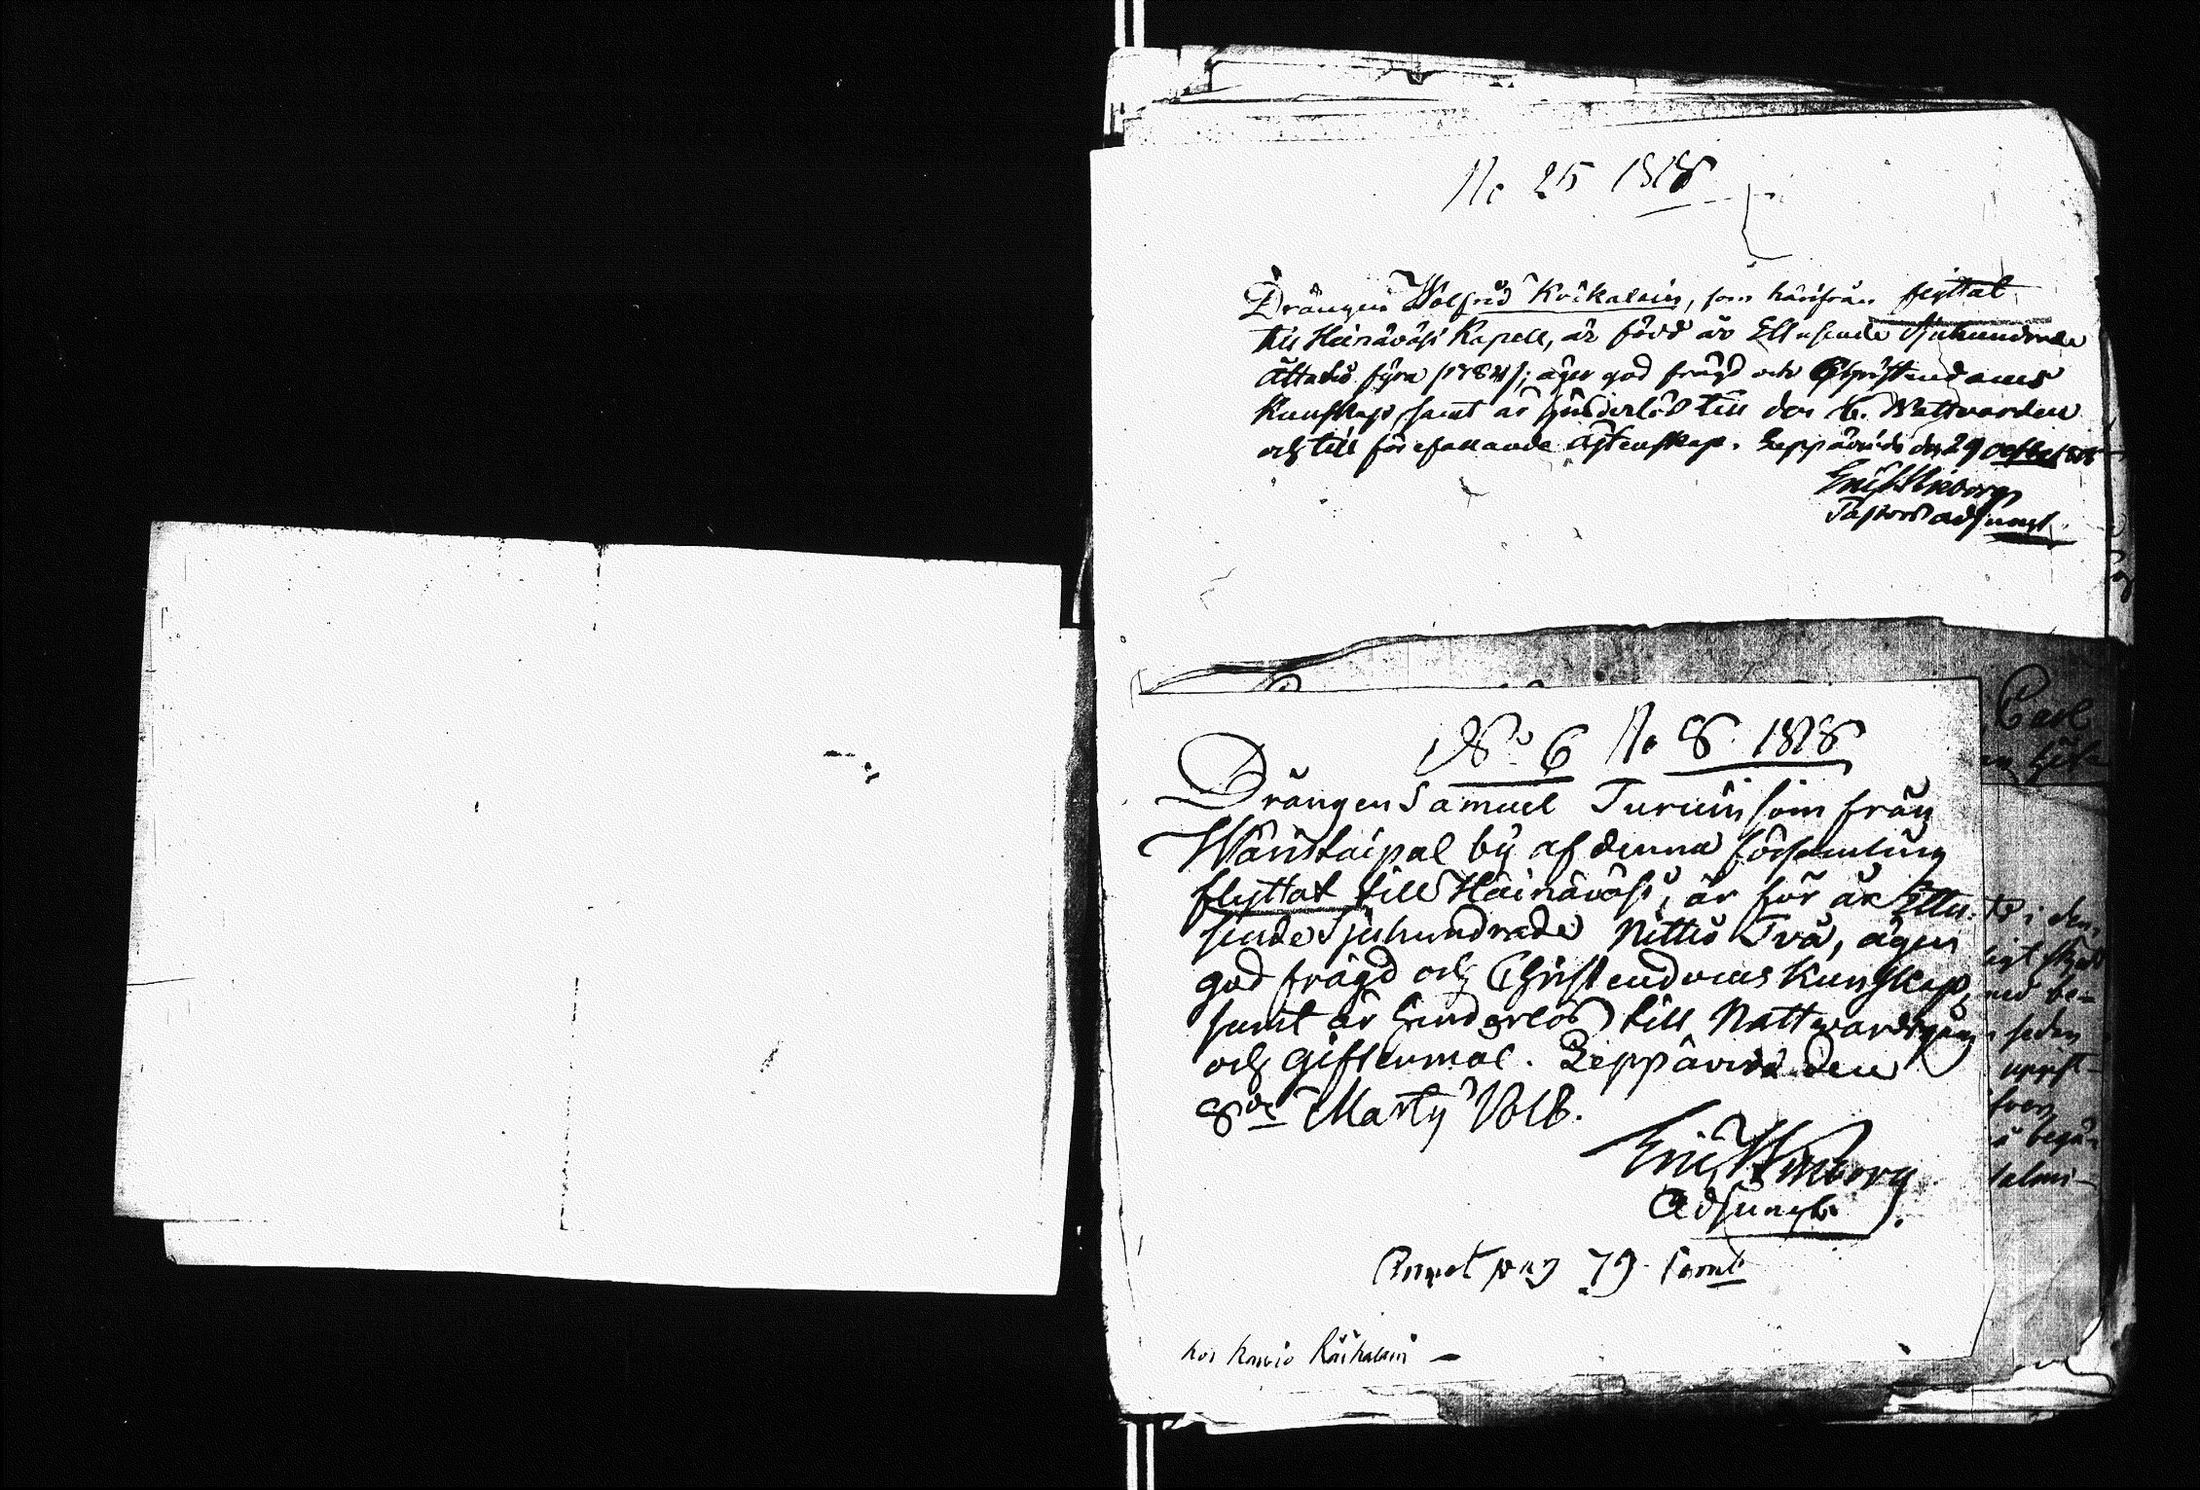 No 25 1818
Drängen Wolfrid Kôikalain, som härifrån flyttat
till Heinäväsi Kapell, är född år Ettusende Sjuhundrade
Åttatio fyra (1784); äger god frägd och Christendoms
Kunskap, samt är hinderlös till den H. Nattvarden
och till förefallande Äktenskap. Leppävirda den 29 octbr 1818
Eric Wiborg
Pastors adjunct.
No 6 No 8 1818
Drängen Samuel Turuin som från
Wänttaipal by af denna församling
flyttat till Hainäväsi, är för år Ettu-
sende Sjuhundrade Nittio Två, äger
god frägd och Christendoms Kunskap,
samt är hinderlös till Nattwardsgång
och giftermål. Leppävirda den
8de Marty 1818.
Eric Wiborg
Adjunct.
Annot pag 79
hos
Carl